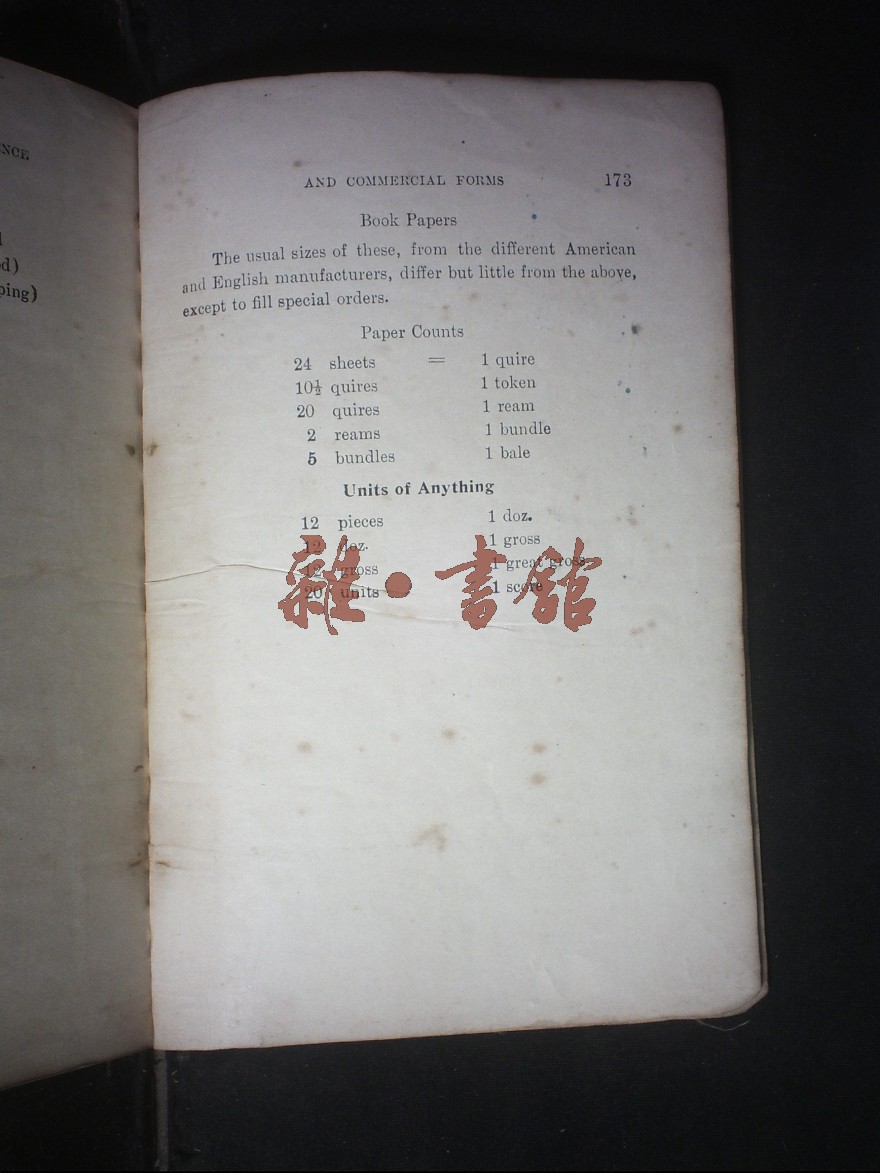 NCE
d)
ping)
AND COMMERCIAL FORMS 173
Book Papers
The usual sizes of these, from the different American
and English manufacturers, differ but little from the above,
except to fill special orders.
Paper Counts
24 sheets = 1 quire
10½ quires 1 token
20 quires 1 ream
2 reams 1 bundle
5 bundles 1 bale
Units of Anything
12 pieces 1 doz.
12 doz. 1 gross
12 gross 1 great gross
20 units 1 score
雜·書館